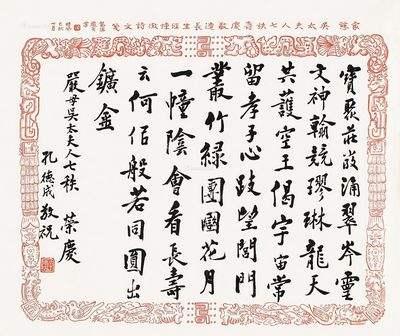 家慈 吳太夫人七秩壽慶敬造長生經幢徵詩文箋
寶聚莊嚴涌翠岑靈
文神翰競璆琳龍天
共護空王偈宇宙常
留孝子心跂望閭門
叢竹綠團圞花月
一幢陰會看長壽
云何佰般若同圓出
鑛金
嚴母吳太夫人七秩 榮慶
孔德成敬祝